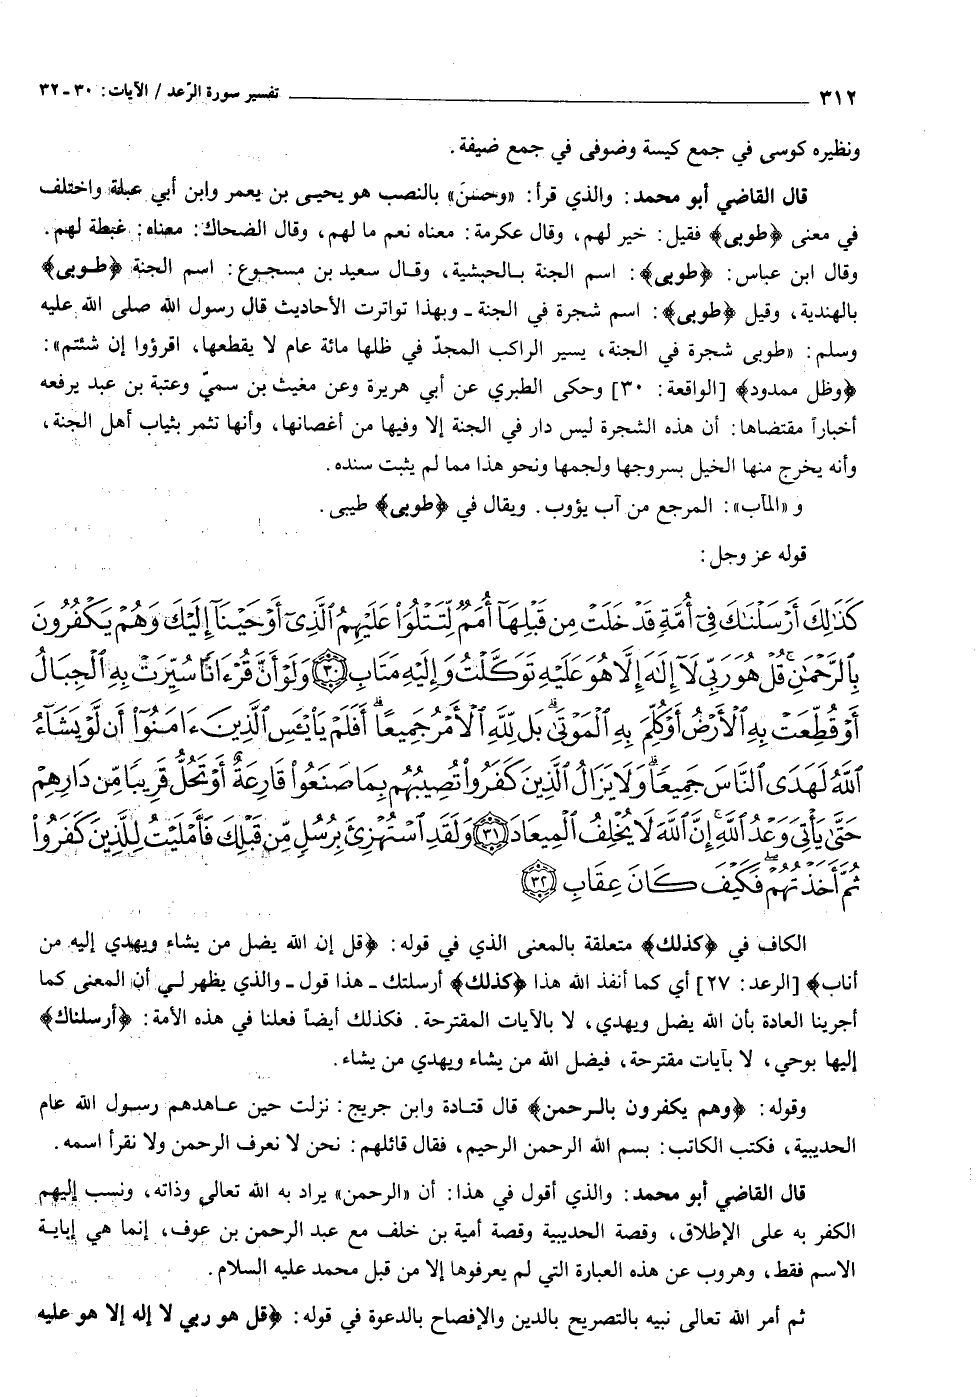 ٣١٢ ــــــــــــ تفسير سورة الرّعد / الآيات: ٣٠ - ٣٢
ونظيره كوسى في جمع كيسة وضوفى في جمع ضيفة.
قال القاضي أبو محمد: والذي قرأ: «وحسنَ» بالنصب هو يحيى بن يعمر وابن أبي عبلة واختلف
في معنى ﴿طوبى﴾ فقيل: خير لهم، وقال عكرمة: معناه نعم ما لهم، وقال الضحاك: معناه: غبطة لهم.
وقال ابن عباس: ﴿طوبى﴾: اسم الجنة بالحبشية، وقال سعيد بن مسجوع: اسم الجنة ﴿طوبى﴾
بالهندية، وقيل ﴿طوبى﴾: اسم شجرة في الجنة - وبهذا تواترت الأحاديث قال رسول الله صلى الله عليه
وسلم: «طوبى شجرة في الجنة، يسير الراكب المجدّ في ظلها مائة عام لا يقطعها، اقرؤوا إن شئتم»:
﴿وظل ممدود﴾ [الواقعة: ٣٠] وحكى الطبري عن أبي هريرة وعن مغيث بن سميّ وعتبة بن عبد يرفعه
أخباراً مقتضاها: أن هذه الشجرة ليس دار في الجنة إلا وفيها من أغصانها، وأنها تثمر بثياب أهل الجنة،
وأنه يخرج منها الخيل بسروجها ولجمها ونحو هذا مما لم يثبت سنده.
و «المآب»: المرجع من آب يؤوب. ويقال في ﴿طوبى﴾ طيبى.
قوله عز وجل:
كَذَٰلِكَ أَرْسَلْنَاكَ فِي أُمَّةٍ قَدْ خَلَتْ مِن قَبْلِهَا أُمَمٌ لِّتَتْلُوَا۟ عَلَيْهِمُ ٱلَّذِي أَوْحَيْنَا إِلَيْكَ وَهُمْ يَكْفُرُونَ
بِٱلرَّحْمَٰنِ ۚ قُلْ هُوَ رَبِّي لَا إِلَٰهَ إِلَّا هُوَ عَلَيْهِ تَوَكَّلْتُ وَإِلَيْهِ مَتَابِ ﴿٣٠﴾ وَلَوْ أَنَّ قُرْءَانًا سُيِّرَتْ بِهِ ٱلْجِبَالُ
أَوْ قُطِّعَتْ بِهِ ٱلْأَرْضُ أَوْ كُلِّمَ بِهِ ٱلْمَوْتَىٰ ۗ بَل لِّلَّهِ ٱلْأَمْرُ جَمِيعًا ۗ أَفَلَمْ يَا۟يْـَٔسِ ٱلَّذِينَ ءَامَنُوٓا۟ أَن لَّوْ يَشَآءُ
ٱللَّهُ لَهَدَى ٱلنَّاسَ جَمِيعًا ۗ وَلَا يَزَالُ ٱلَّذِينَ كَفَرُوا۟ تُصِيبُهُم بِمَا صَنَعُوا۟ قَارِعَةٌ أَوْ تَحُلُّ قَرِيبًا مِّن دَارِهِمْ
حَتَّىٰ يَأْتِيَ وَعْدُ ٱللَّهِ ۚ إِنَّ ٱللَّهَ لَا يُخْلِفُ ٱلْمِيعَادَ ﴿٣١﴾ وَلَقَدِ ٱسْتُهْزِئَ بِرُسُلٍ مِّن قَبْلِكَ فَأَمْلَيْتُ لِلَّذِينَ كَفَرُوا۟
ثُمَّ أَخَذْتُهُمْ ۖ فَكَيْفَ كَانَ عِقَابِ ﴿٣٢﴾
الكاف في ﴿كذلك﴾ متعلقة بالمعنى الذي في قوله: ﴿قل إن الله يضل من يشاء ويهدي إليه من
أناب﴾ [الرعد: ٢٧] أي كما أنفذ الله هذا ﴿كذلك﴾ أرسلتك - هذا قول - والذي يظهر لي أن المعنى كما
أجرينا العادة بأن الله يضل ويهدي، لا بالآيات المقترحة. فكذلك أيضاً فعلنا في هذه الأمة: ﴿أرسلناك﴾
إليها بوحي، لا بآيات مقترحة، فيضل الله من يشاء ويهدي من يشاء.
وقوله: ﴿وهم يكفرون بالرحمن﴾ قال قتادة وابن جريج: نزلت حين عاهدهم رسول الله عام
الحديبية، فكتب الكاتب: بسم الله الرحمن الرحيم، فقال قائلهم: نحن لا نعرف الرحمن ولا نقرأ اسمه.
قال القاضي أبو محمد: والذي أقول في هذا: أن «الرحمن» يراد به الله تعالى وذاته، ونسب إليهم
الكفر به على الإطلاق، وقصة الحديبية وقصة أمية بن خلف مع عبد الرحمن بن عوف، إنما هي إباية
الاسم فقط، وهروب عن هذه العبارة التي لم يعرفوها إلا من قبل محمد عليه السلام.
ثم أمر الله تعالى نبيه بالتصريح بالدين والإفصاح بالدعوة في قوله: ﴿قل هو ربي لا إله إلا هو عليه